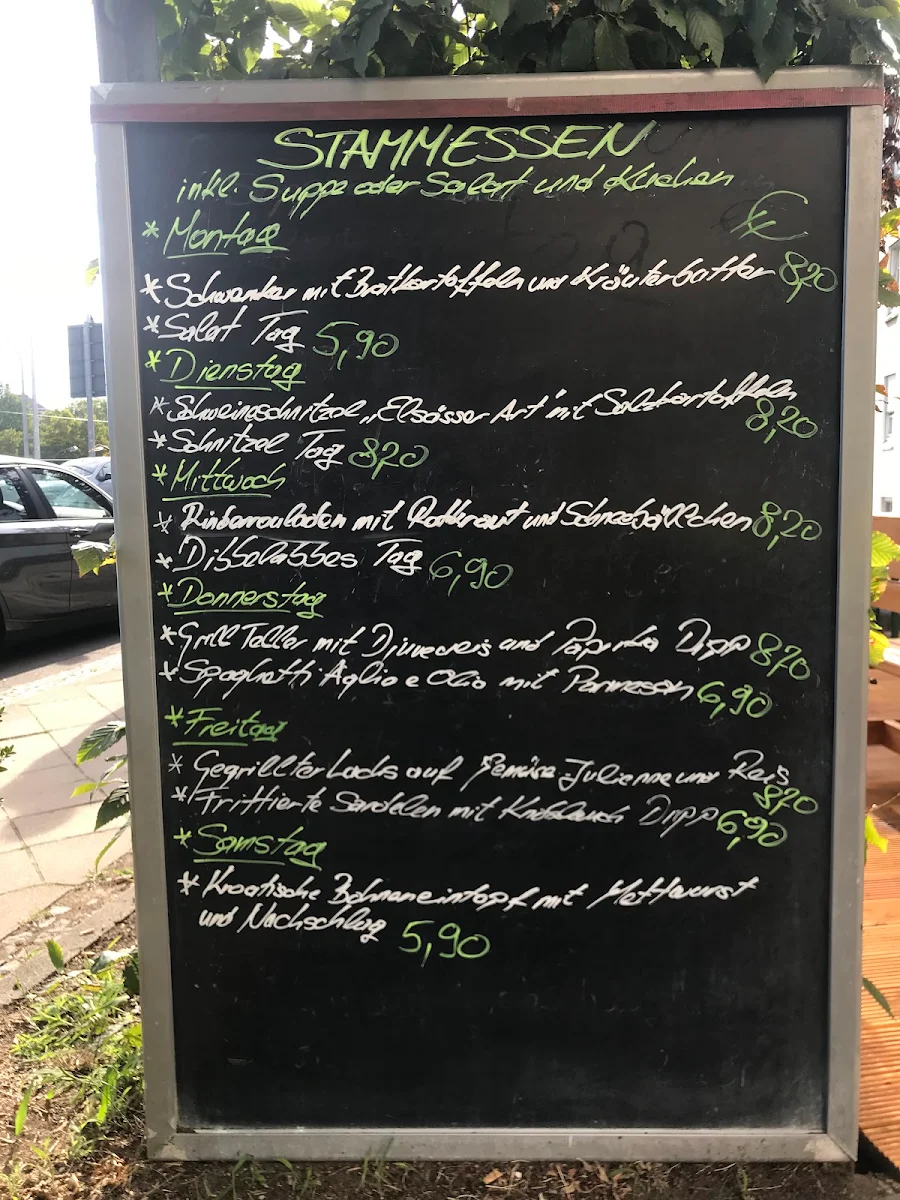 STAMMESSEN
inkl. Suppe oder Salat und Kuchen
* Montag €
* Schwenker mit Bratkartoffeln und Kräuterbutter 8,20
* Salat Tag 5,90
* Dienstag
* Schweineschnitzel „Elsässer Art" mit Salzkartoffeln
8,20
* Schnitzel Tag 8,20
* Mittwoch
* Rinderrouladen mit Rotkraut und Schneebällchen 8,20
* Dibbelabbes Tag 6,90
* Donnerstag
* Grill Teller mit Djuvecreis und Paprika Dipp 8,20
* Spaghetti Aglio e Olio mit Parmesan 6,90
* Freitag
* Gegrillter Lachs auf Gemüse Julienne und Reis
8,20
* Frittierte Sardelen mit Knoblauch Dipp 6,90
* Samstag
* Kroatische Bohneneintopf mit Mettwurst
und Nachschlag 5,90